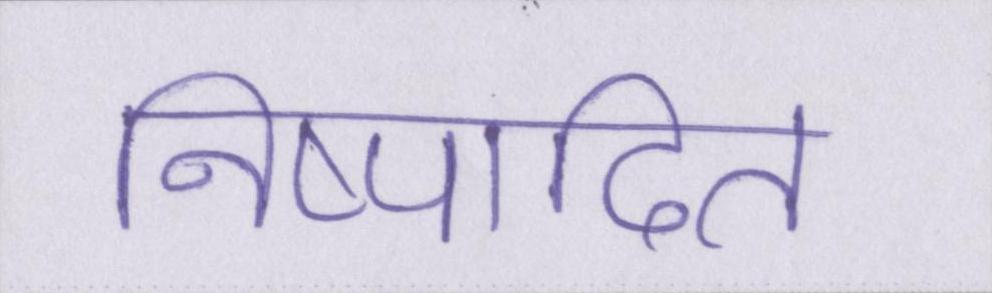 निष्पादित